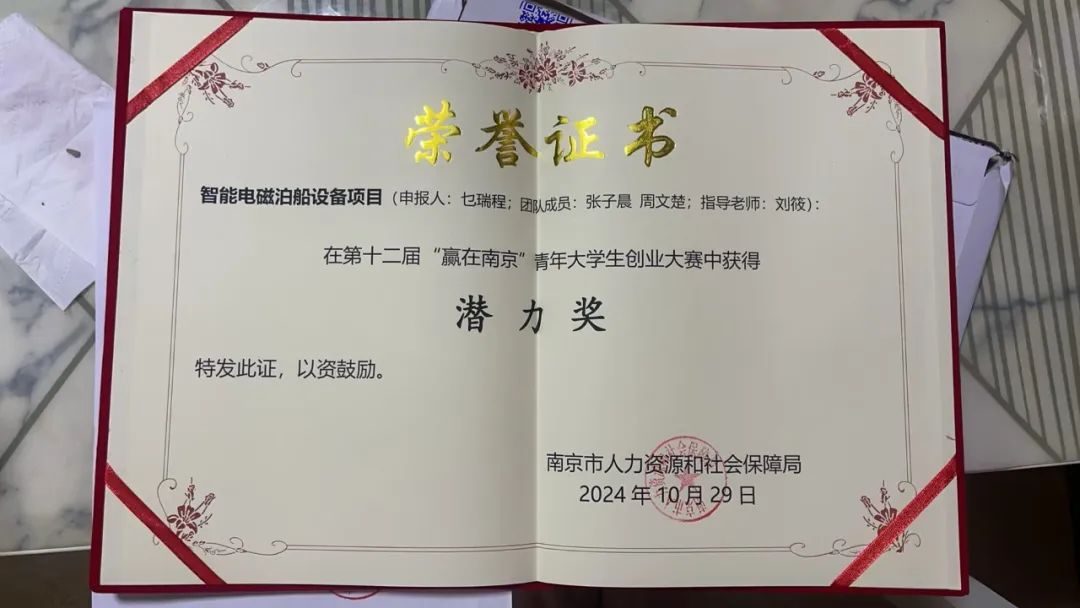 荣誉证书
智能电磁泊船设备项目（申报人：乜瑞程；团队成员：张子晨 周文楚；指导老师：刘筱）：
在第十二届“赢在南京”青年大学生创业大赛中获得
潜力奖
特发此证，以资鼓励。
南京市人力资源和社会保障局
2024年10月29日